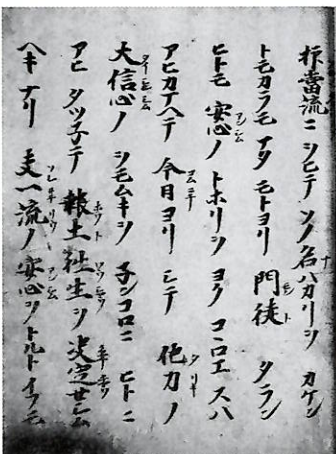 抑當流ニヲヒテソノ名ハカリヲカケン
トモカラモマタモトヨリ門徒タラン
ヒトモ安心ノトホリヲヨクコヽロエスハ
アヒカマヘテ今日ヨリシテ他力ノ
大信心ノヲモムキヲ子ンコロニヒトニ
アヒタツ子テ報土往生ヲ决定セシム
ヘキナリ夫一流ノ安心ヲトルトイフモ